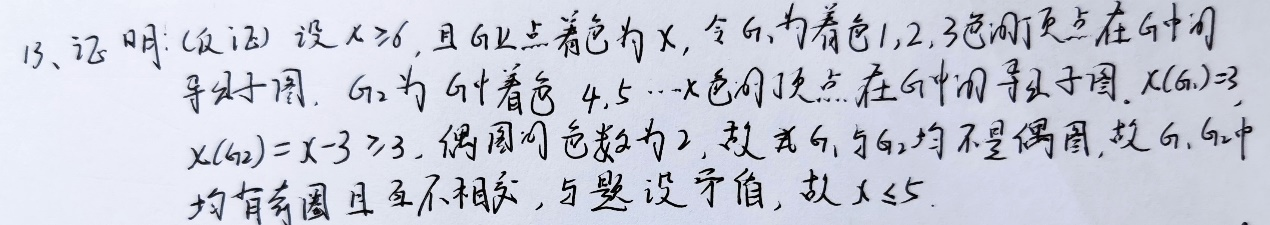 13、证明:(反证) 设 χ≥6,且G正点着色为χ,令G₁为着色1,2,3色的顶点在G中的
导出子图. G₂为G中着色 4,5…χ色的顶点在G中的导出子图. χ(G₁)=3,
χ(G₂)=χ-3≥3. 偶图的色数为2,故 G₁与G₂均不是偶图,故G₁,G₂中
均有奇圈且互不相交,与题设矛盾,故χ≤5.